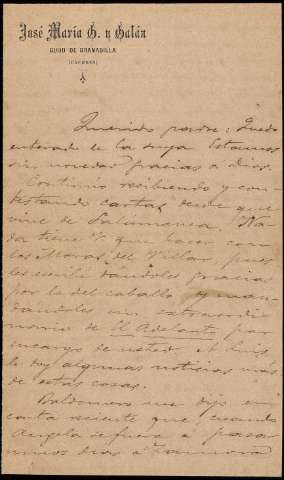 José María G. y Galán
GUIJO DE GRANADILLA
(CÁCERES)
Querido padre: Quedo
enterado de la suya. Estamos
sin novedad gracias a Dios.
Continúo recibiendo y con-
testando cartas desde que
vine de Salamanca. Na-
da tiene V. que hacer con
los Moros del Villar, pues
les escribí dándoles gracias
por lo del caballo y man-
dándoles un extraordi-
nario de El Adelanto por
encargo de usted. A Luis
le doy algunas noticias más
de estas cosas.
Baldomero me dijo en
carta reciente que, cuando
Angela se fuera a pasar
unos días a Zamora